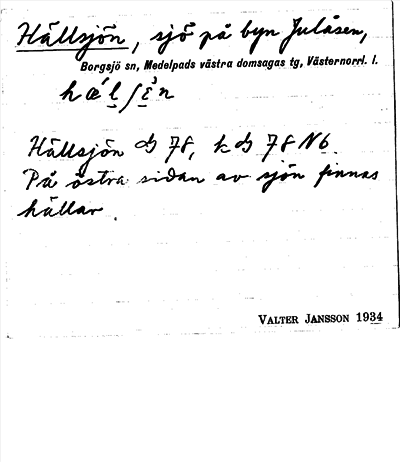 Hällsjön, sjö på byn Julåsen,
Borgsjö sn, Medelpads västra domsagas tg, Västernorrl. l.
Hällsjön 78, 78 N6.
På östra sidan av sjön finnas
hällar.
VALTER JANSSON 1934